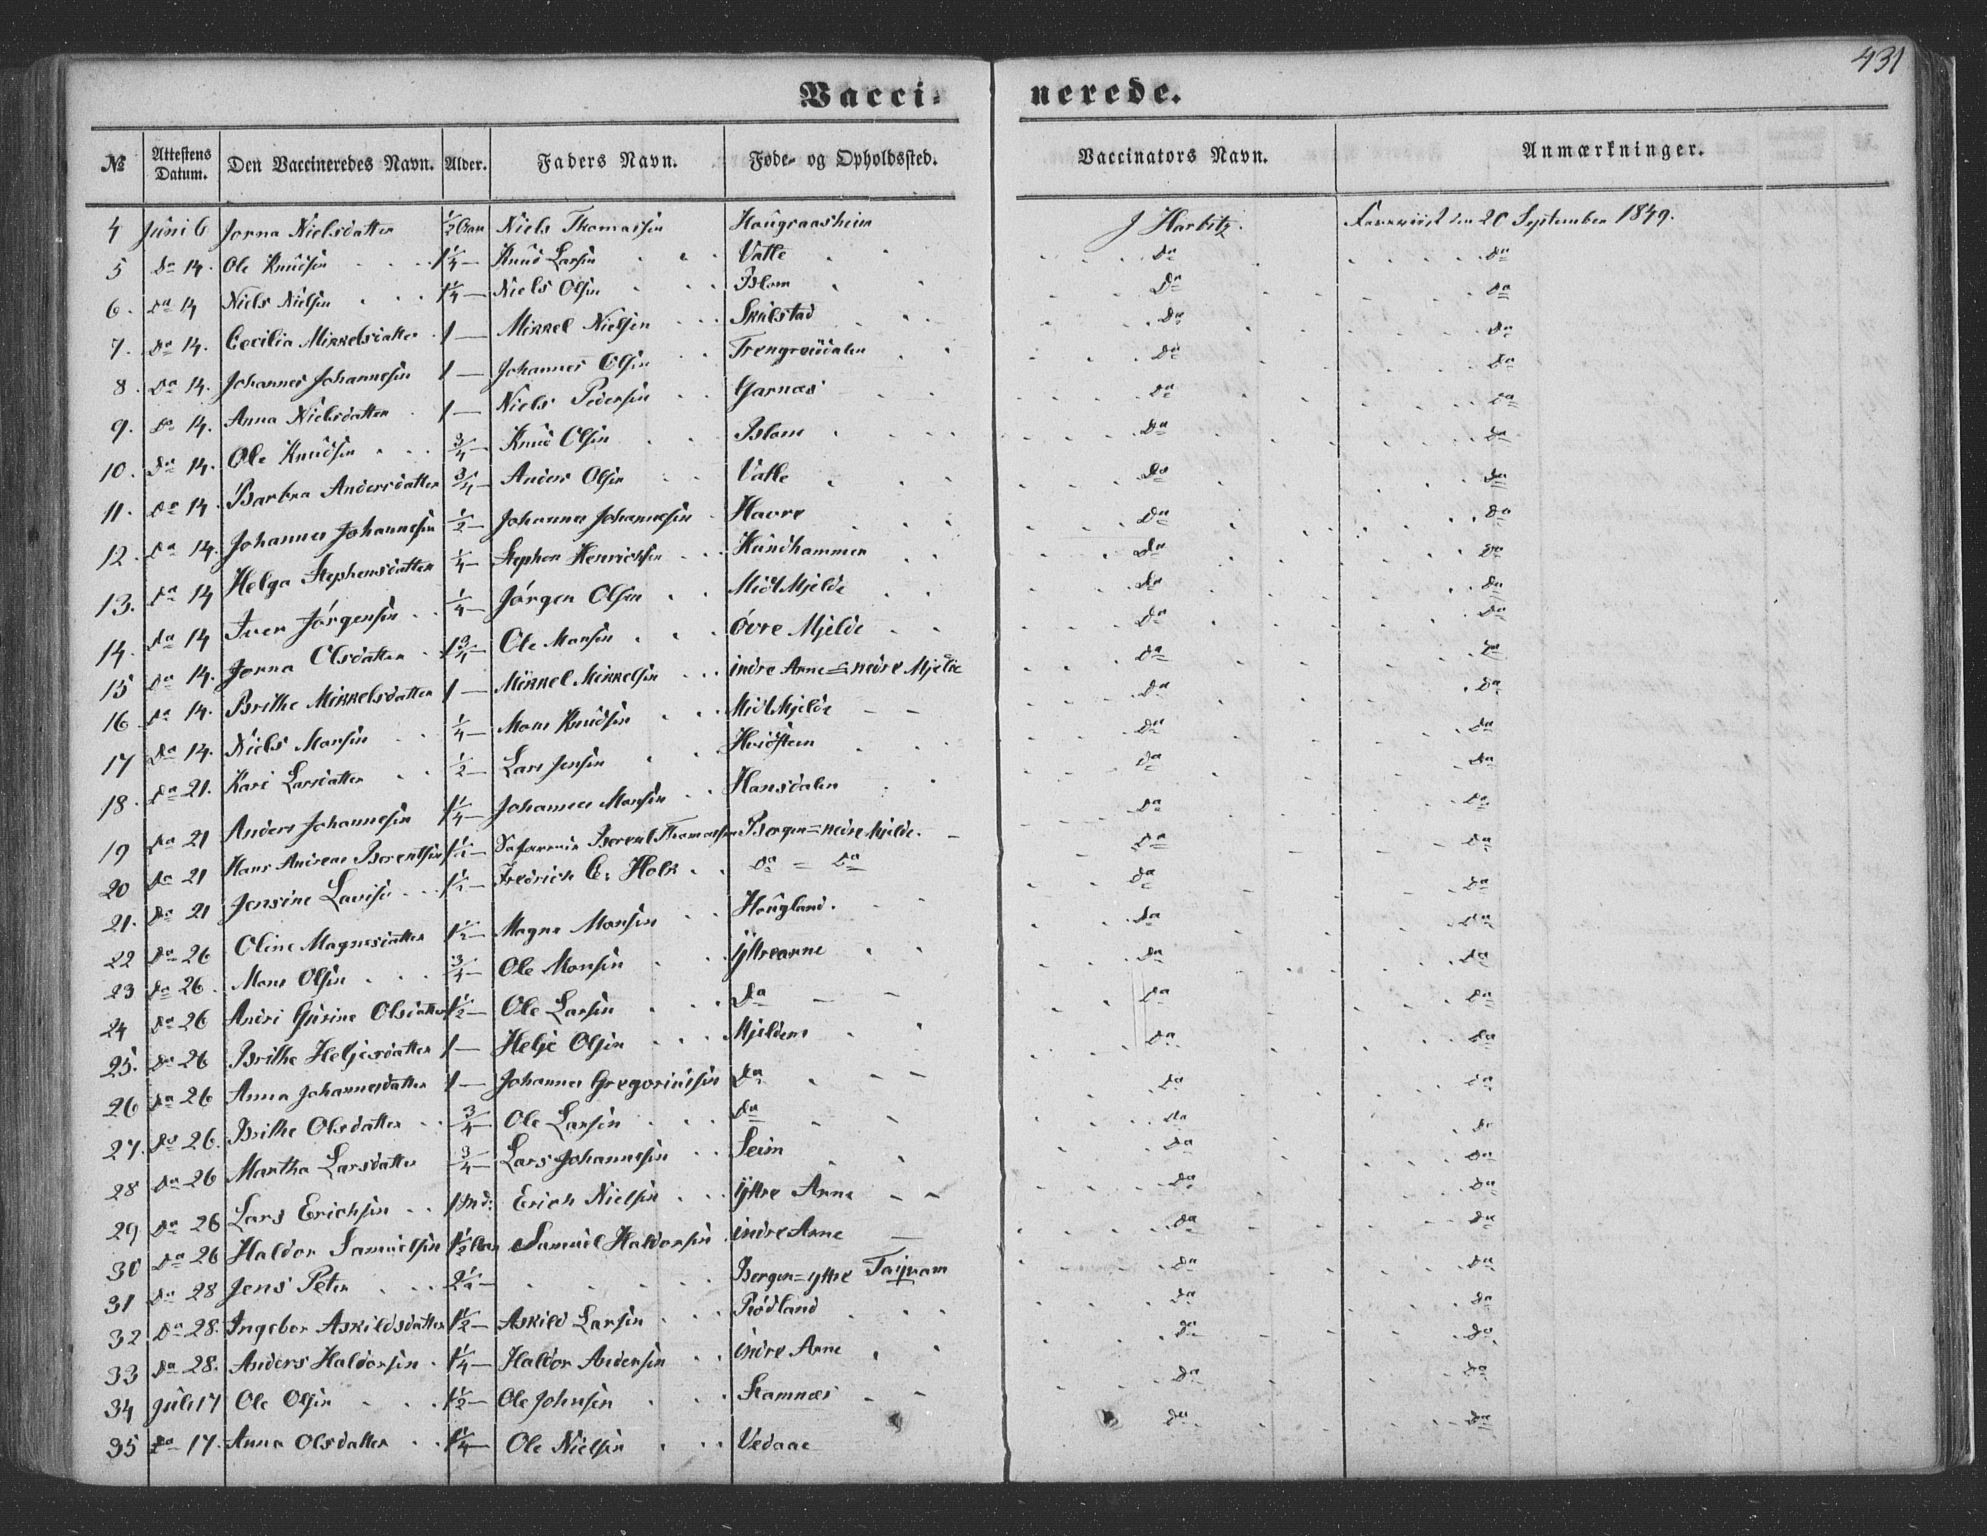 431
Vaccinerede.
No Attestens Datum. Den Vaccineredes Navn. Alder. Faders Navn. Føde- og Opholdssted. Vaccinators Navn. Anmærkninger.
4 Juni 6 Jorna Nielsdatter 1/2 Aar Niels Thomassen Haugraasheim J Harbitz. den 20 September 1849.
5 Do 14. Ole Knudsen 1 1/4 — Knud Larsen Valle Do Do
6. Do 14 Niels Nielsen 1 1/4 — Niels Olsen Blom Do Do
7. Do 14. Cecilia Mikkelsdatter 1 — Mikkel Nielsen Skulstad Do Do
8. Do 14. Johannes Johannesen 1 — Johannes Olsen Trengreiddalen Do Do
9. Do 14. Anna Nielsdatter 1 — Niels Pedersen Garnæs Do Do
10. Do 14. Ole Knudsen 3/4 — Knud Olsen Blom Do Do
11. Do 14. Barbra Andersdatter 3/4 — Anders Olsen Valle Do Do
12. Do 14. Johannes Johannesen 1/2 — Johannes Johannesen Havre Do Do
13. Do 14 Helga Stephensdatter 1/4 — Stephen Henrichsen Hundhammer Do Do
14. Do 14 Iver Jørgensen 1/4 — Jørgen Olsen Midt Mjelde Do Do
15 Do 14. Jorna Olsdatter 1 3/4 — Ole Monsen øvre Mjelde Do Do
16 Do 14. Brithe Mikkelsdatter 1 — Mikkel Mikkelsen indre Arne = nedre Mjelde Do Do
17 Do 14. Niels Monsen 1/4 — Mons Knudsen Midt Mjelde Do Do
18. Do 21. Kari Larsdatter 1/2 — Lars Jensen Hvidsteen Do Do
19 Do 21 Anders Johannesen 1 1/4 — Johannes Monsen Hansdalen Do Do
20 Do 21 Hans Andreas Berentsen — Berent Thomassen Bergen = nedre Mjelde. Do Do
21. Do 21 Jensine Lovise — Fredrich C: Holk Do = Do Do Do
22 Do 26 Oline Magnesdatter 1 1/2 — Magne Monsen Haugland. Do Do
23 Do 26. Mons Olsen 3/4 — Ole Monsen Yttrearne Do Do
24 Do 26 Andri Gurine Olsdatter 1 1/2 — Ole Larsen Do Do Do
25. Do 26 Brithe Heljesdatter 1 — Helje Olsen Mjeldem Do Do
26 Do 26 Anna Johannesdatter 1 — Johannes Gregoriussen Do Do Do
27. Do 26. Brithe Olsdatter 3/4 — Ole Larsen Do Do Do
28 Do 26 Martha Larsdatter 3/4 — Lars Johannesen Seim Do Do
29 Do 26 Lars Erichsen 1 Md: Erich Nielsen Yttre Arne Do Do
30 Do 26 Haldor Samuelsen 1 1/2 Aar Samuel Haldorsen indre Arne Do Do
31 Do 28 Jens Peter — Bergen = yttre Do Do
32 Do 28. Ingebor Askildsdatter 1 1/2 — Askild Larsen Rødland Do Do
33 Do 28. Anders Haldorsen 1 1/4 — Haldor Andersen indre Arne Do Do
34 Juli 17 Ole Olsen 1 1/2 — Ole Johnsen Stamnæs Do Do
35 Do 17. Anna Olsdatter 1 1/4 — Ole Nielsen Vedaae Do Do